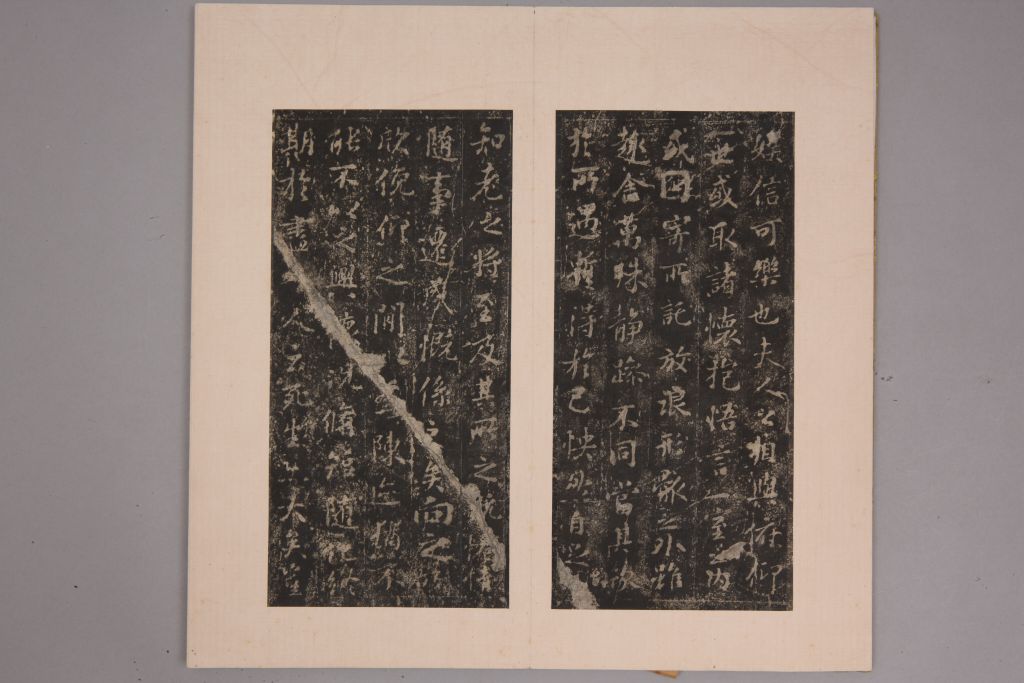 娛信可樂也夫人之相與俯仰
一世或取諸懷抱悟言一室之內
或因寄所託放浪形骸之外雖
趣舍萬殊靜躁不同當其欣
於所遇蹔得於己怏然自足不
知老之將至及其所之既惓情
隨事遷感慨係之矣向之所
欣俛仰之間以為陳迹猶不
能不以之興懷況脩短隨化終
期於盡古人云死生亦大矣豈